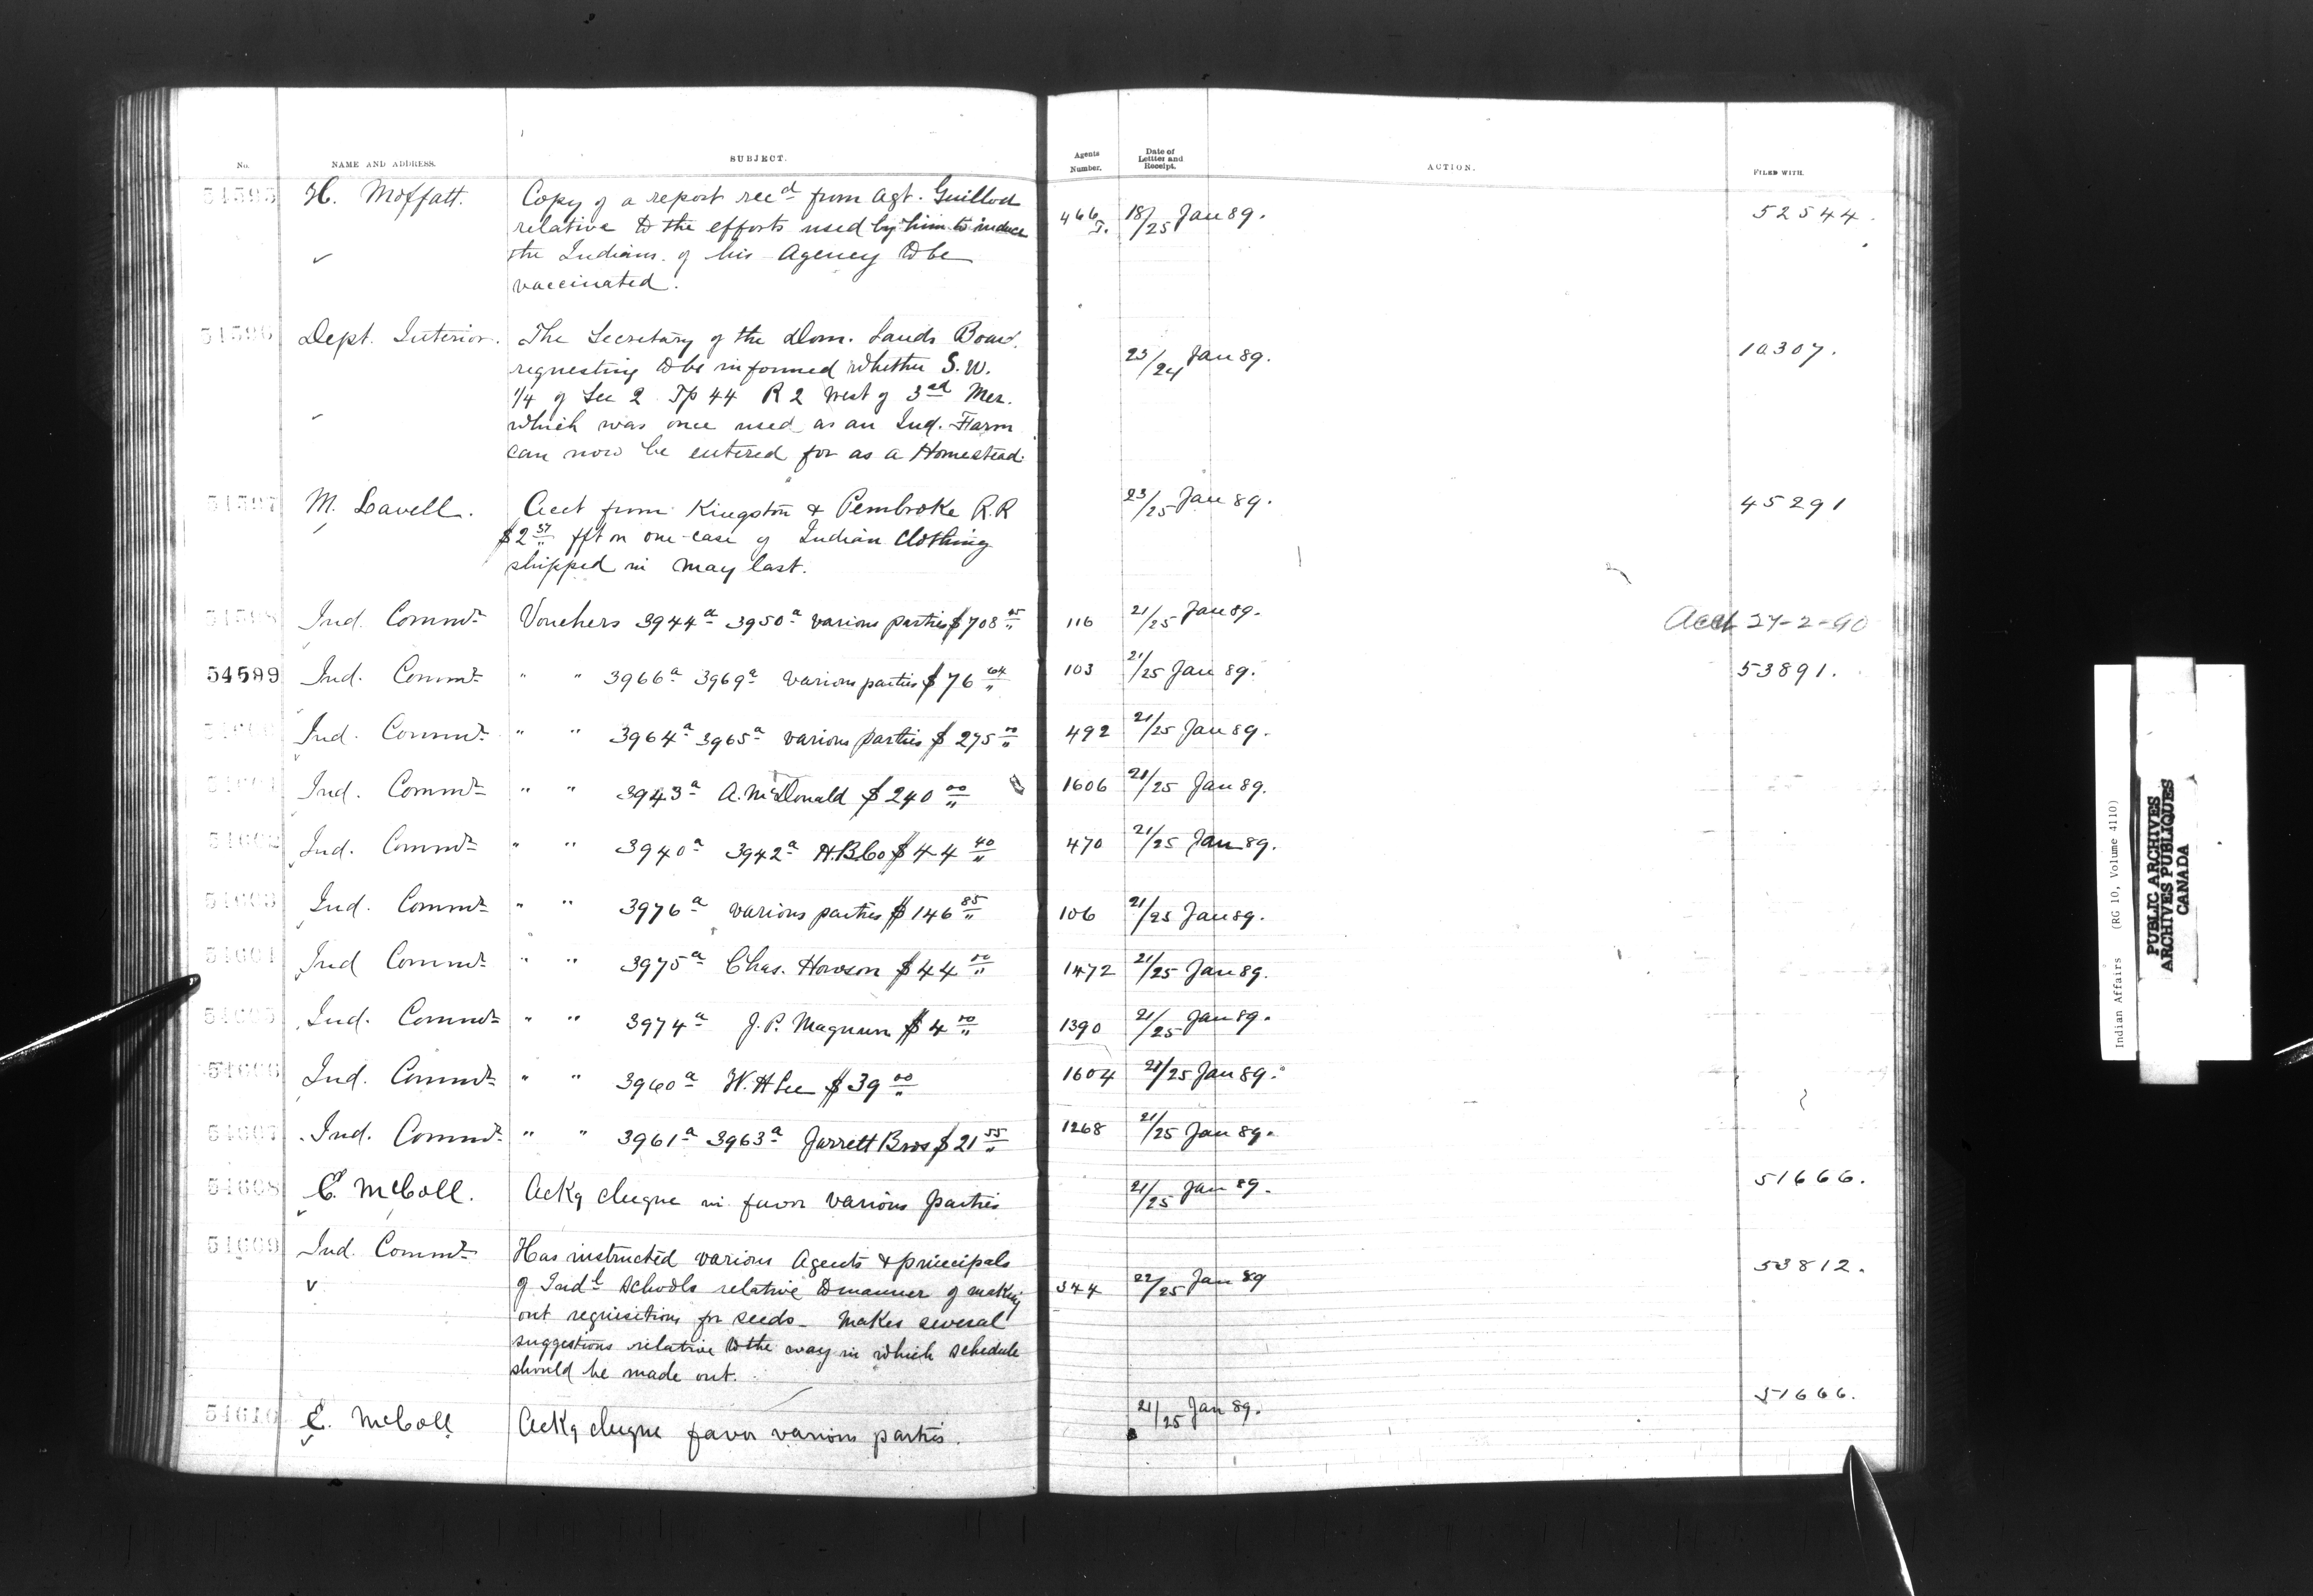 No. NAME AND ADDRESS. SUBJECT. Agents Number. Date of Lettter and Receipt. ACTION. FILED WITH.
54595 H. Moffatt. Copy of a report recd from Agt. Guillod 466 J. 18/25 Jan 89. 52544.
relative to the efforts used by him to induce
the Indians of his Agency to be
vaccinated.
54596 Dept. Interior. The Secretary of the Dom. Lands Board. 23/24 Jan 89. 10307.
requesting to be informed whether S.W.
1/4 of Sec 2 Tp 44 R 2 West of 3rd Mer.
which was once used as an Ind. Farm
can now be entered for as a Homestead.
54597 M. Lavell. Acct from Kingston & Pembroke R.R 23/25 Jan 89. 45291
$2 57 fft on one case of Indian Clothing
shipped in May last.
54598 Ind. Commr Vouchers 3944a 3950a various parties $708 45 116 21/25 Jan 89. Acct 27-2-90
54599 Ind. Commr " " 3966a 3969a various parties $76 64 103 21/25 Jan 89. 53891.
54600 Ind. Commr " " 3964a 3965a various parties $275 00 492 21/25 Jan 89.
54601 Ind. Commr " " 3943a A. McDonald $240 00 1606 21/25 Jan 89.
54602 Ind. Commr " " 3940a 3942a H.B.Co $44 40 470 21/25 Jan 89.
54603 Ind. Commr " " 3976a various parties $146 85 106 21/25 Jan 89.
54604 Ind Commr " " 3975a Chas. Howson $44 00 1472 21/25 Jan 89.
54605 Ind. Commr " " 3974a J. P. Magnum $4 00 1390 21/25 Jan 89.
54606 Ind. Commr " " 3960a W. H Lee $39 00 1604 21/25 Jan 89.
54607 Ind. Commr " " 3961a 3963a Jarrett Bros $21 55 1268 21/25 Jan 89.
54608 E. McColl. Ackg cheque in favor various parties 21/25 Jan 89. 51666.
54609 Ind. Commr Has instructed various Agents & principals 53812.
of Indl Schools relative to manner of making 344 22/25 Jan 89
out requisitions for seeds - Makes several
suggestions relative to the way in which schedule
should be made out.
54610 E. McColl Ackg cheque favor various parties. 21/25 Jan 89. 51666.
Indian Affairs (RG 10, Volume 4110)
PUBLIC ARCHIVES
ARCHIVES PUBLIQUES
CANADA